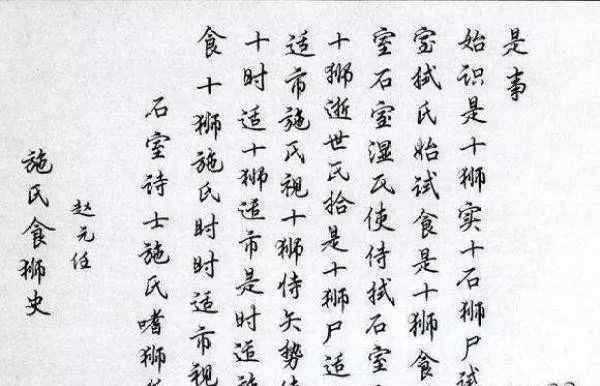 施氏食狮史
赵元任
石室诗士施氏嗜狮
食十狮施氏时时适市视
十时适十狮适市是时适
适市施氏视十狮恃矢势
十狮逝世氏拾是十狮尸适
室石室湿氏使侍拭石室
室拭氏始试食是十狮食
始识是十狮实十石狮尸试
是事